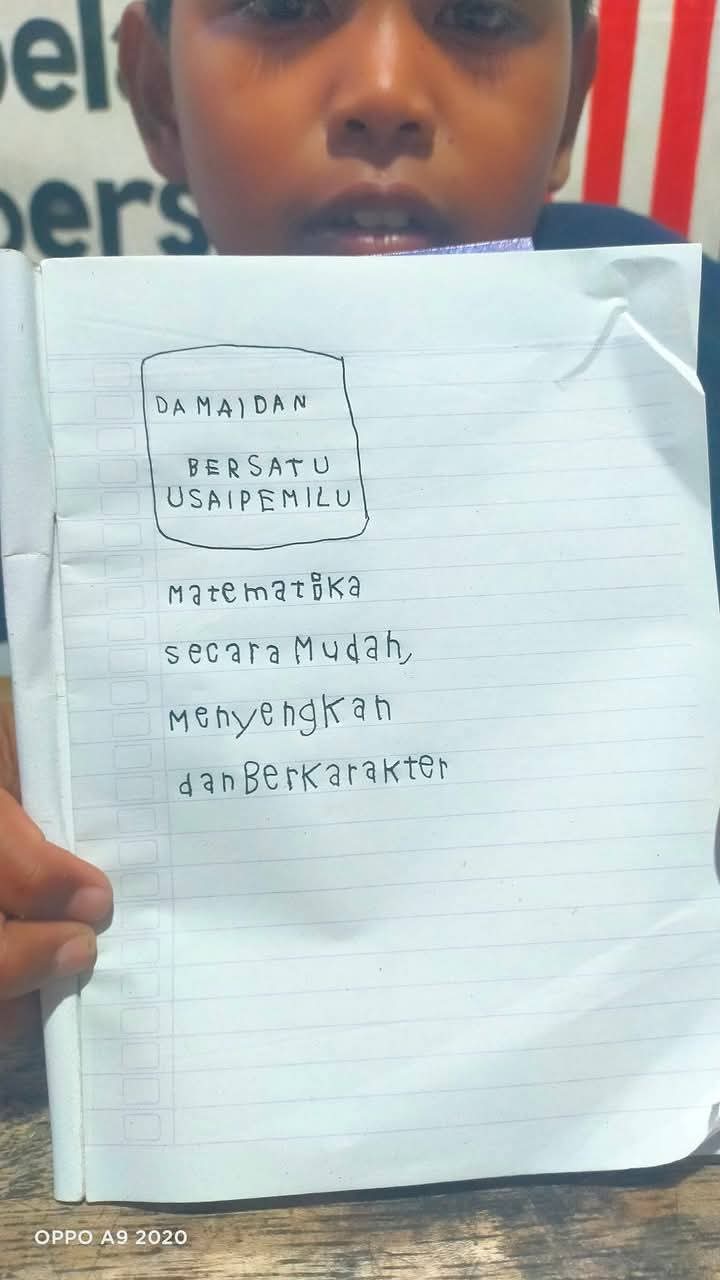 pel
pers
DAMAIDAN
BERSATU
USAIPEMILU
Matematika
secara Mudah,
Menyengkan
danBerkarakter
OPPO A9 2020